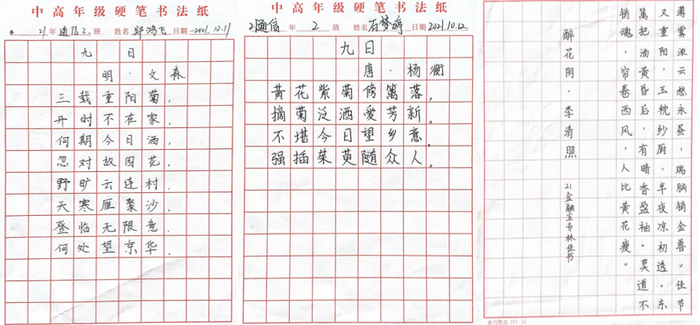 中高年级硬笔书法纸
21年 通信2班 姓名 邱鸿飞 日期 2021.10.11
九日
明·文森
三载重阳菊，
开时不在家。
何期今日酒，
忽对故园花。
野旷云连村，
天寒雁聚沙。
登临无限意，
何处望京华。
中高年级硬笔书法纸
21通信 2 班 姓名 日期 2021.10.12
九日
唐·杨衡
黄花紫菊傍篱落，
摘菊泛酒爱芳新。
不堪今日望乡意，
强插茱萸随众人。
薄雾浓云愁永昼，瑞脑销金兽。佳节
又重阳，玉枕纱厨，半夜凉初透。东
篱把酒黄昏后，有暗香盈袖。莫道不
销魂，帘卷西风，人比黄花瘦。
醉花阴·李清照
21金融五专林佳书